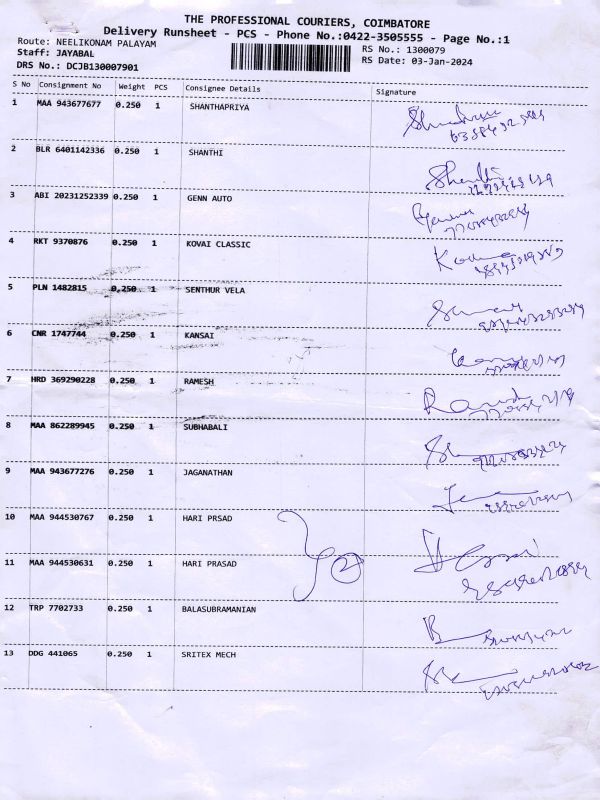 THE PROFESSIONAL COURIERS, COIMBATORE
Delivery Runsheet - PCS - Phone No.:0422-3505555 - Page No.:1
Route: NEELIKONAM PALAYAM
Staff: JAYABAL
DRS No.: DCJB130007901
RS No.: 1300079
RS Date: 03-Jan-2024
S No Consignment No Weight PCS Consignee Details Signature
1 MAA 943677677 0.250 1 SHANTHAPRIYA
2 BLR 6401142336 0.250 1 SHANTHI
3 ABI 20231252339 0.250 1 GENN AUTO
4 RKT 9370876 0.250 1 KOVAI CLASSIC
5 PLN 1482815 0.250 1 SENTHUR VELA
6 CNR 1747744 0.250 1 KANSAI
7 HRD 369290228 0.250 1 RAMESH
8 MAA 862289945 0.250 1 SUBHABALI
9 MAA 943677276 0.250 1 JAGANATHAN
10 MAA 944530767 0.250 1 HARI PRSAD
11 MAA 944530631 0.250 1 HARI PRASAD
12 TRP 7702733 0.250 1 BALASUBRAMANIAN
13 DDG 441065 0.250 1 SRITEX MECH